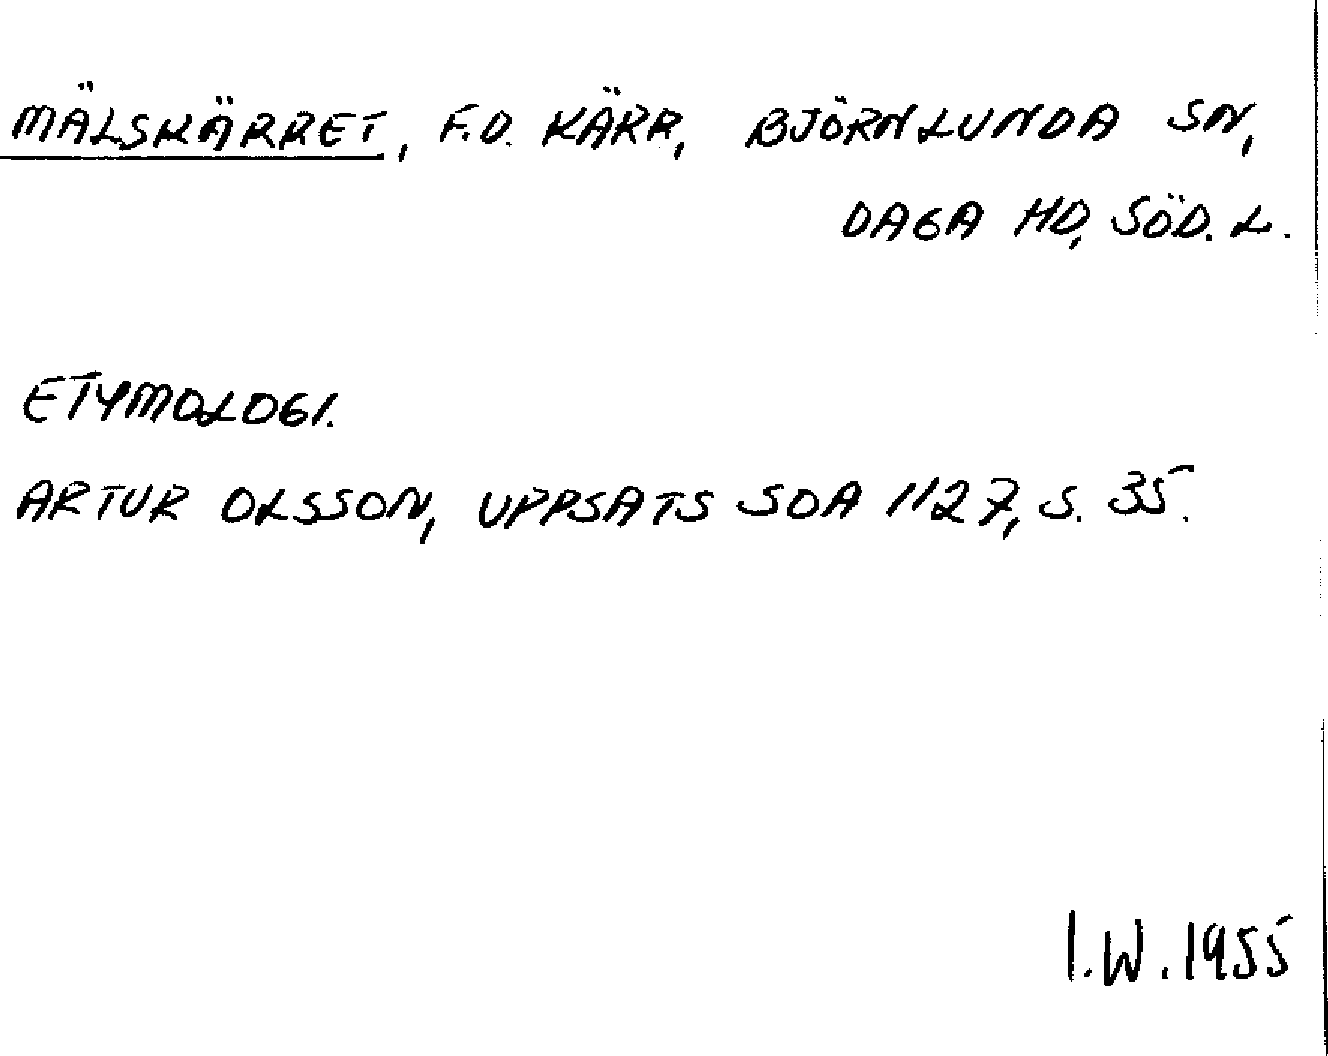 MÄLSKÄRRET, F.D. KÄRR, BJÖRNLUNDA SN,
DAGA HD, SÖD. L.
ETYMOLOGI.
ARTUR OLSSON, UPPSATS SOA 1127, S. 35.
I.W. 1955